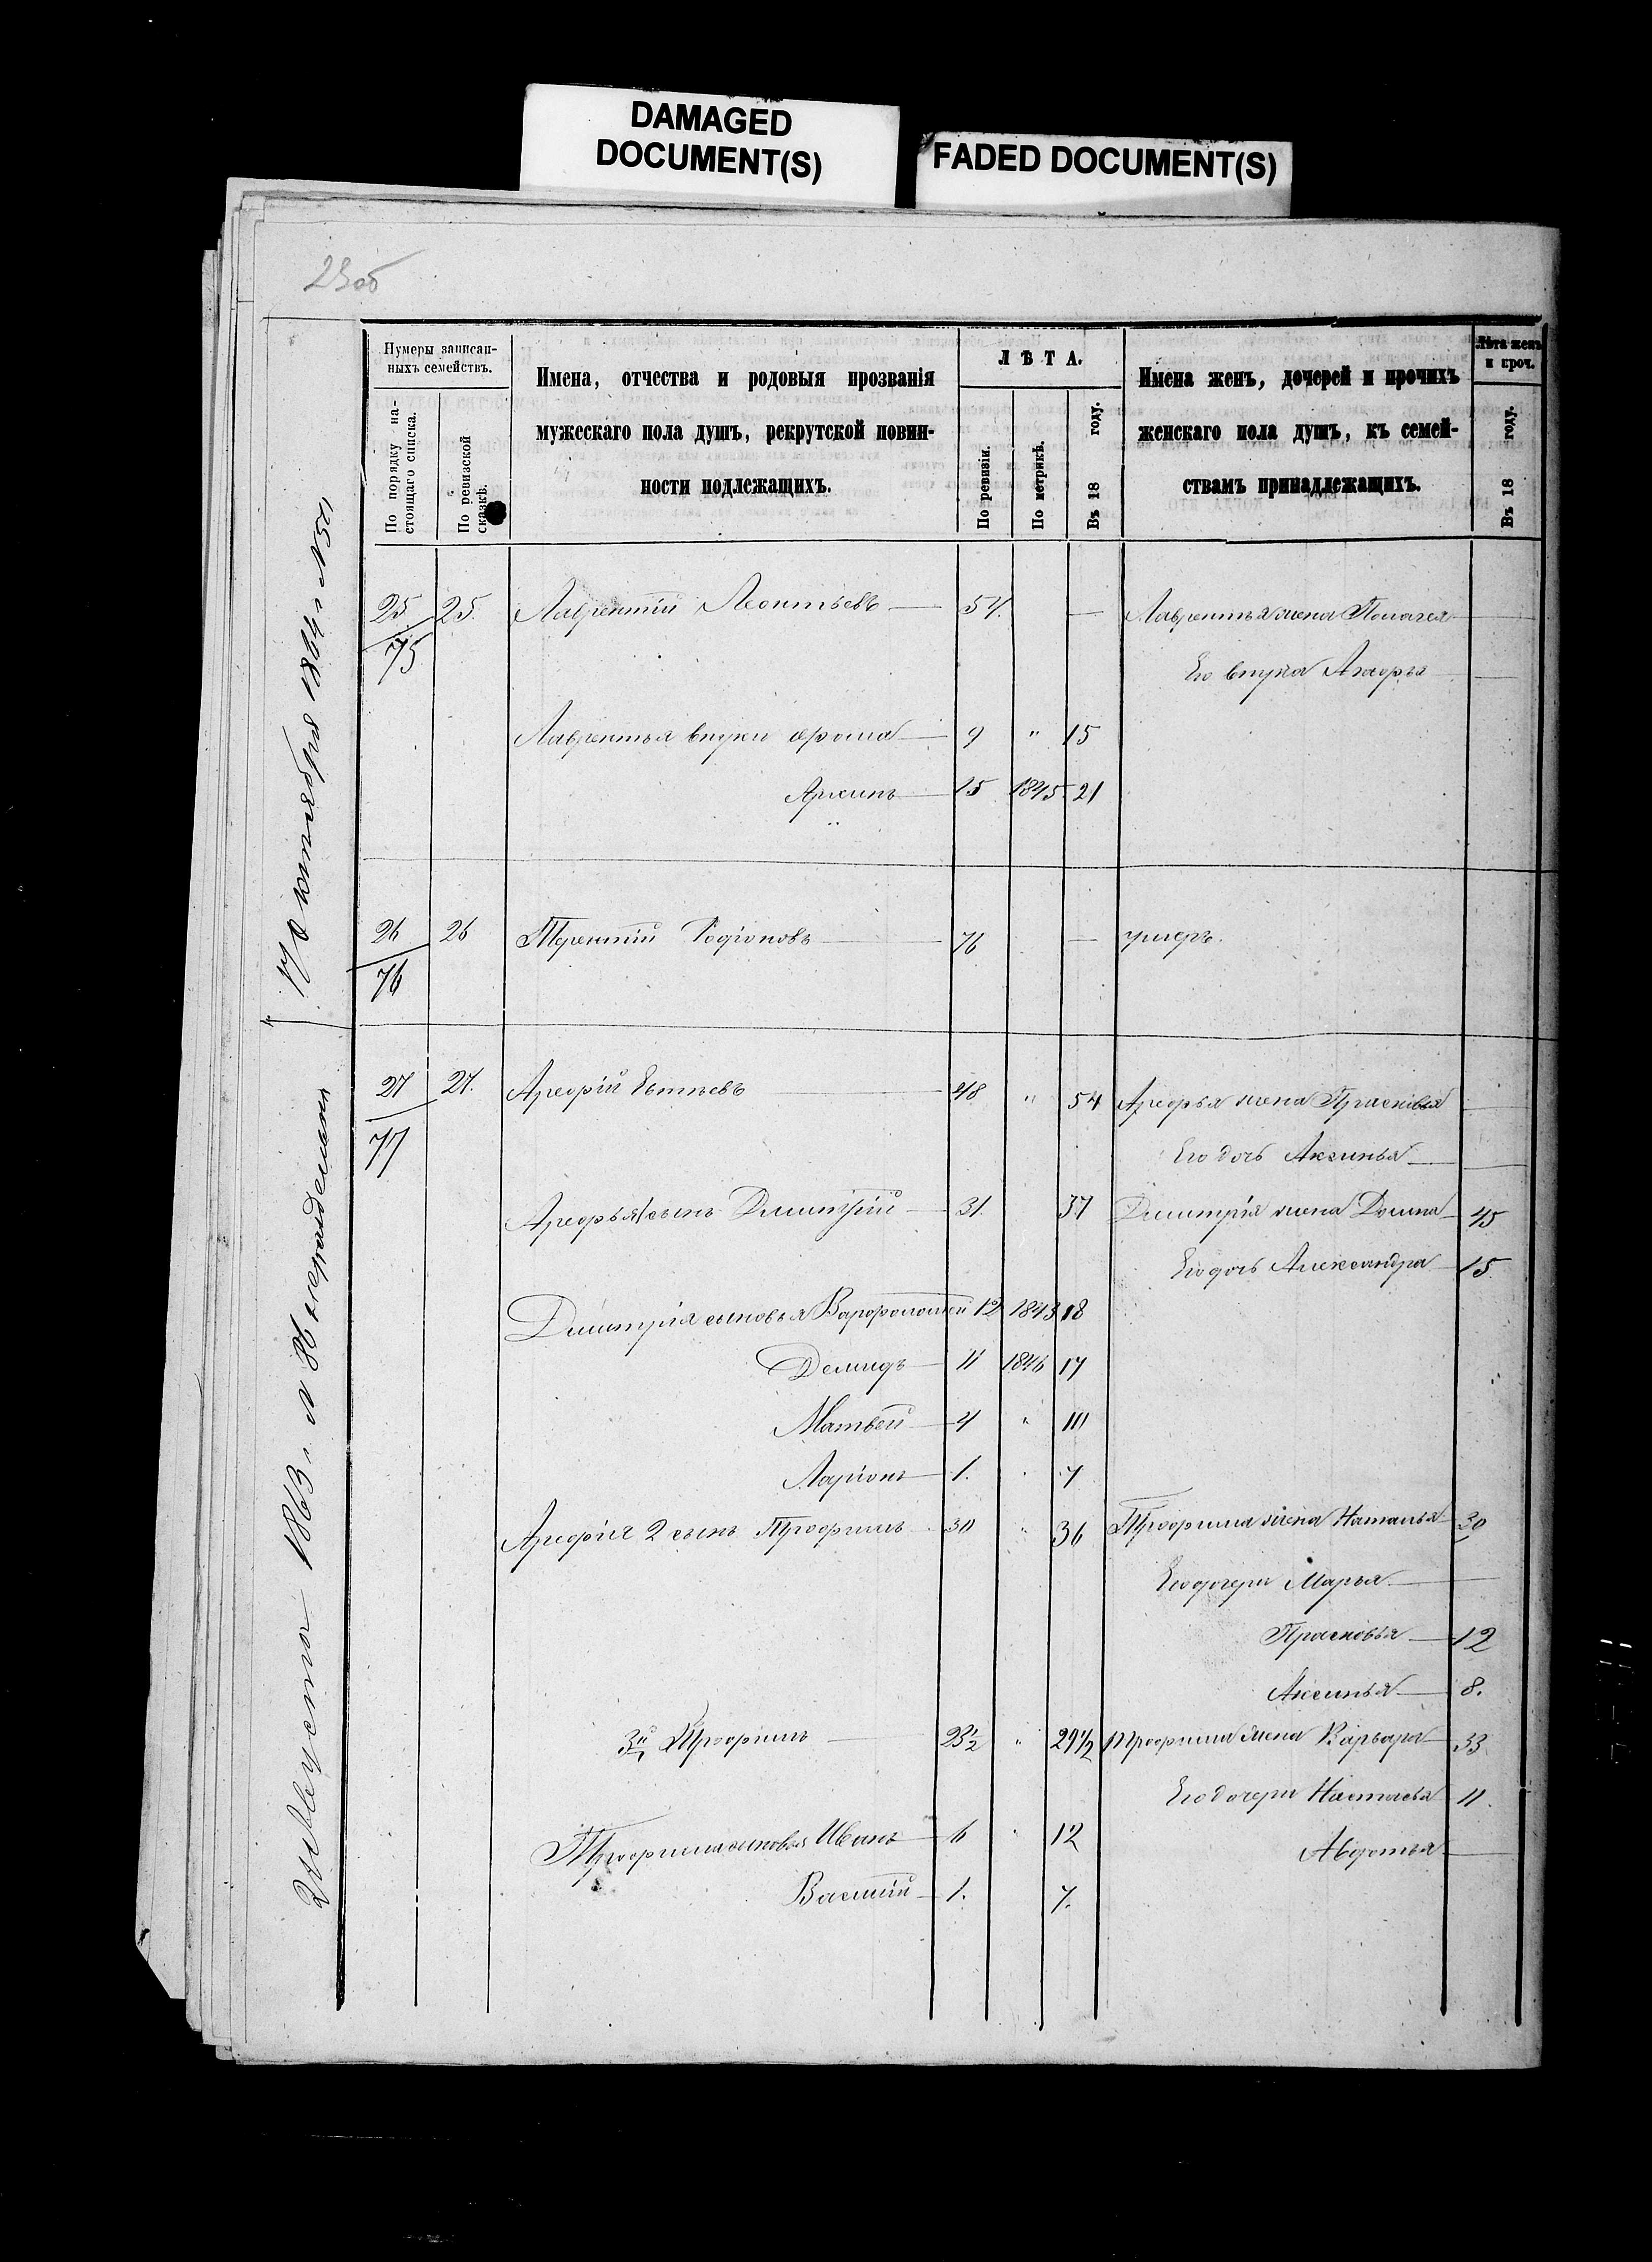 DAMAGED
DOCUMENT(S)
FADED DOCUMENT(S)
23об
Нумеры записан-
ныхъ семействъ.
По порядку на-
стоящаго списка.
По ревизской
сказкѣ.
Имена, отчества и родовыя прозванія
мужескаго пола душъ, рекрутской повин-
ности подлежащихъ.
ЛѢТА.
По ревизіи.
По метрикѣ.
Въ 18 году.
Имена женъ, дочерей и прочихъ
женскаго пола душъ, къ семей-
ствамъ принадлежащихъ.
Лѣта женъ
и проч.
Въ 18 году.
25. 25. Лаврентій Леонтьевъ 54. — Лаврентья жена —
75
Его внука —
Лаврентья внуки 9 " 15
15 1845 21
26 26 Терентій Родіоновъ 76 — умеръ.
76
27 27. Арефій 48 " 54 Арефья жена Прасковья —
77
Его дочь Аксинья —
Арефья сынъ Дмитрій 31. 37 Дмитрія жена Домна 45
Его дочь Александра 15.
Дмитрія сыновья Варфоломей 12 1843 18
Демидъ 11 1846 17
Матвей 4 " 10
Ларіонъ 1. " 7
Арефія 2 сынъ Трофимъ 30 " 36 Трофима жена Наталья 30
Его дочери Марья —
Прасковья 12
Аксинья 8.
3й Трофимъ 23½ " 29½ Трофима жена Варвара 33
Его дочери Настасья 11.
Трофима сыновья Иванъ 6 " 12
Авдотья —
Василій 1. 7.
2 Августа 1863 г. N 86
17 октября 1864 г. N